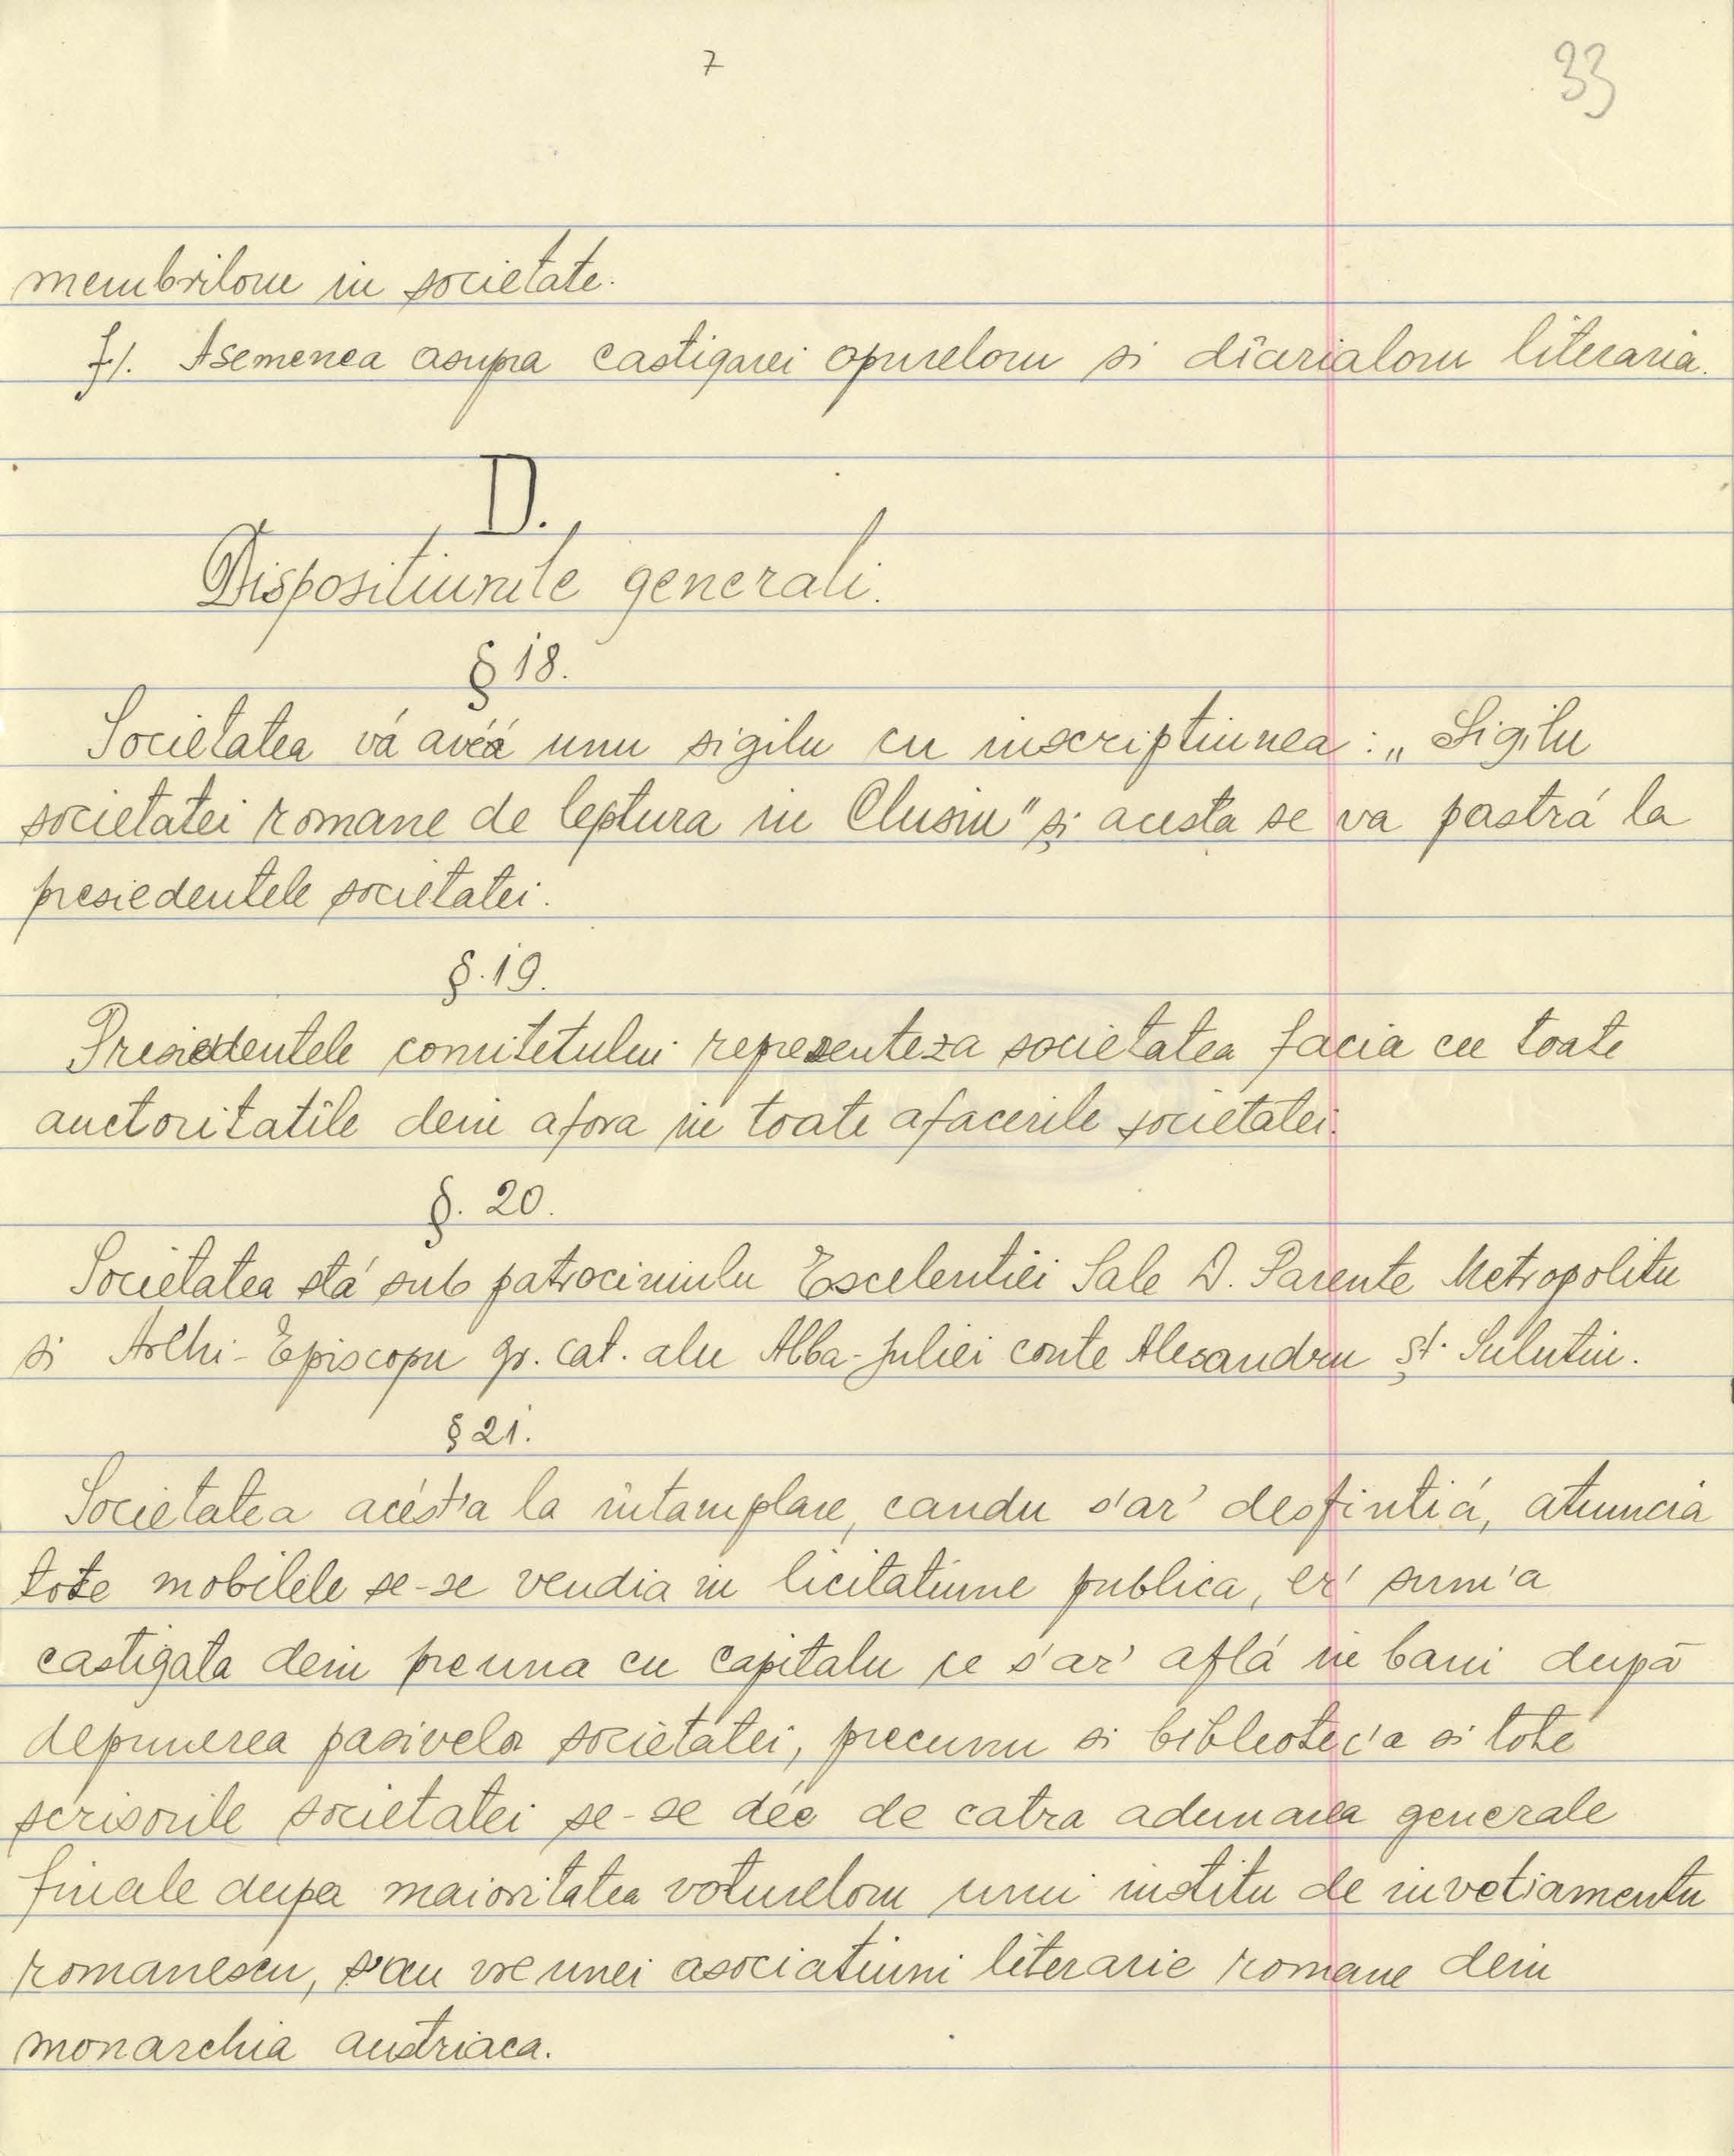 7
33
membriloru in societate.
f/. Asemenea asupra castigarei opureloru si diarialoru literaria.
D.
Dispositiunile generali.
§ 18.
Societatea vá aveá unu sigilu cu inscriptiunea: „Sigilu
societatei romane de leptura in Clusiu" și acesta se va pastrá la
presiedentele societatei.
§. 19.
Presiedentele comitetului representeza societatea facia cu toate
auctoritatile dein afora in toate afacerile societatei.
§. 20.
Societatea stá sub patrociniulu Escelentiei Sale D. Parente Metropolitu
si Archi-Episcopu gr. cat. alu Alba-Juliei conte Alesandru Șt. Sulutiu.
§ 21.
Societatea acést'a la intamplare, candu s'ar' desfintiá, atuncia
tote mobilele se-se vendia in licitatiune publica, er' sum'a
castigata dein preuna cu capitalu ce s'ar' aflá in bani după
depunerea pasivelor societatei, precumu si bibliotec'a si tote
scrisorile societatei se-se dée de catra adunarea generale
finale dupa maioritatea votureloru unui institu de invetiamentu
romanescu, s'au vre unei asociatiuni literarie romane dein
monarchia austriaca.